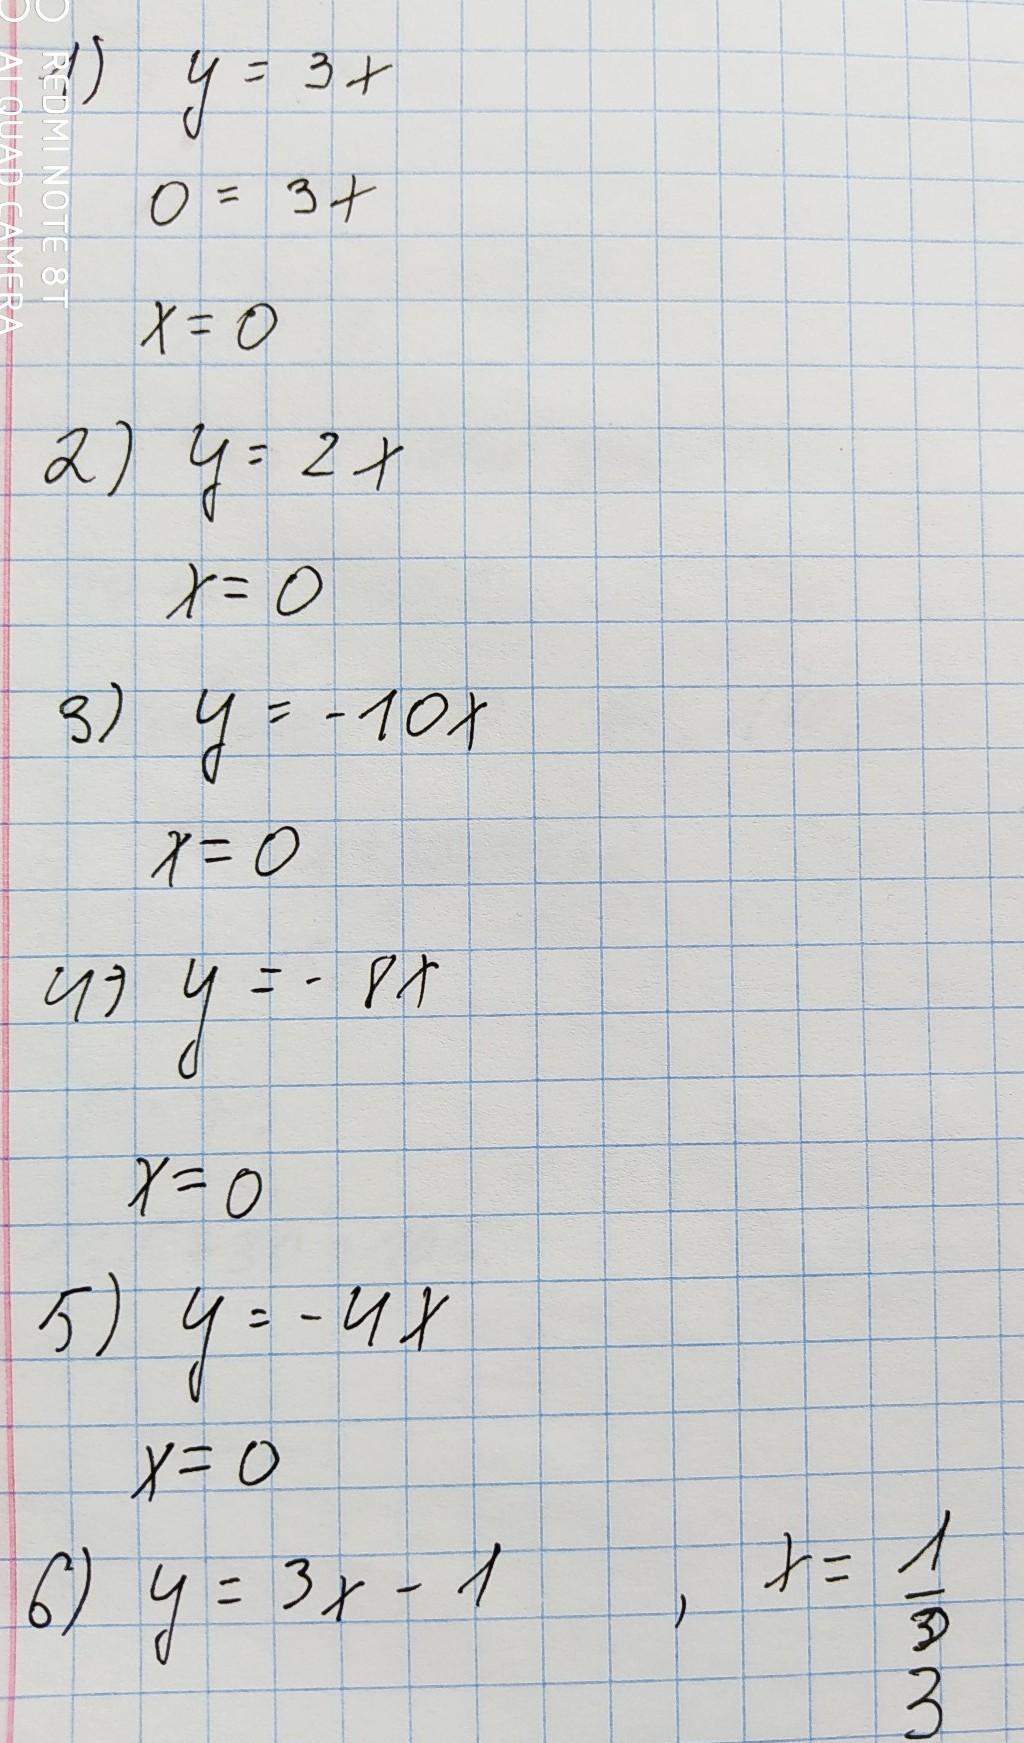 1) y = 3x
0 = 3x
x = 0
2) y = 2x
x = 0
3) y = -10x
x = 0
4) y = - 8x
x = 0
5) y = -4x
x = 0
6) y = 3x - 1 , x = 1/3
3
REDMI NOTE 8T
AI QUAD CAMERA